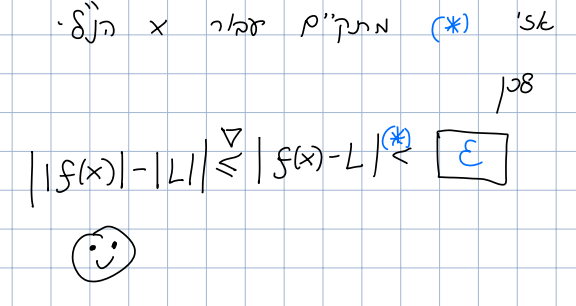 אזי (*) מתקיים עבור x הנ"ל.
שכן
||f(x)|-|L|| ≤^∇ |f(x)-L| <^(*) ε